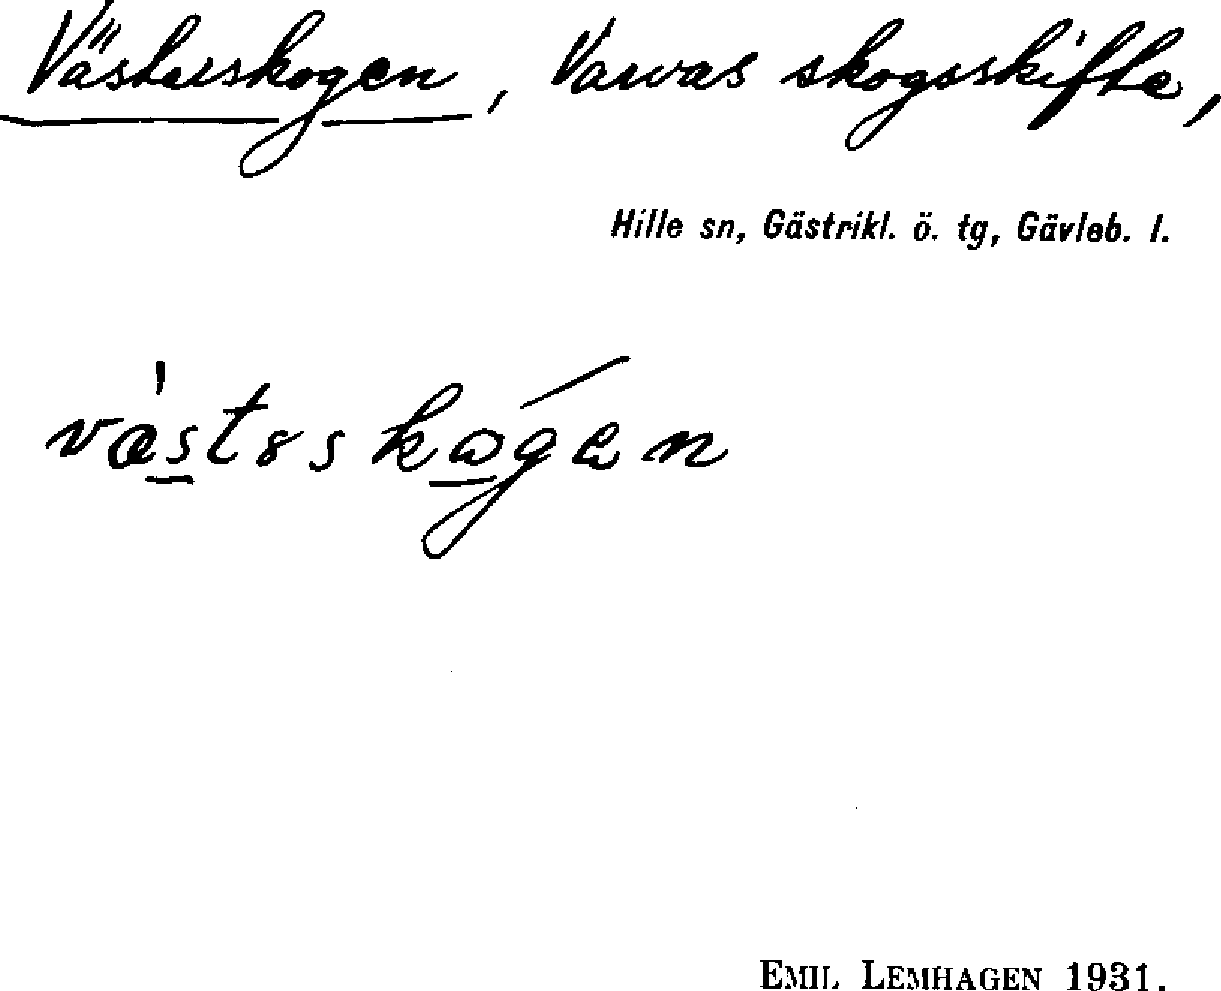 Västerskogen, Varvas skogsskifte,
Hille sn, Gästrikl. ö. tg, Gävleb. l.
EMIL LEMHAGEN 1931.